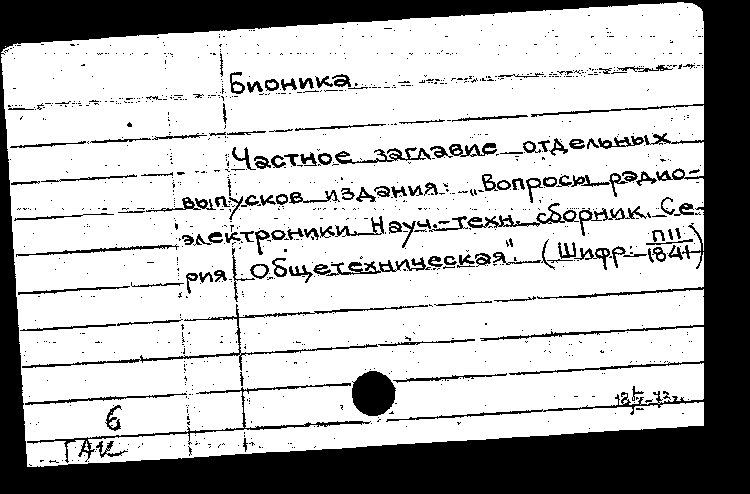 Бионика.
Частное заглавие отдельных
выпусков издания: „Вопросы радио-
электроники. Науч.-техн. сборник. Се-
рия Общетехническая". (Шифр: П11/1841)
6
ГАК